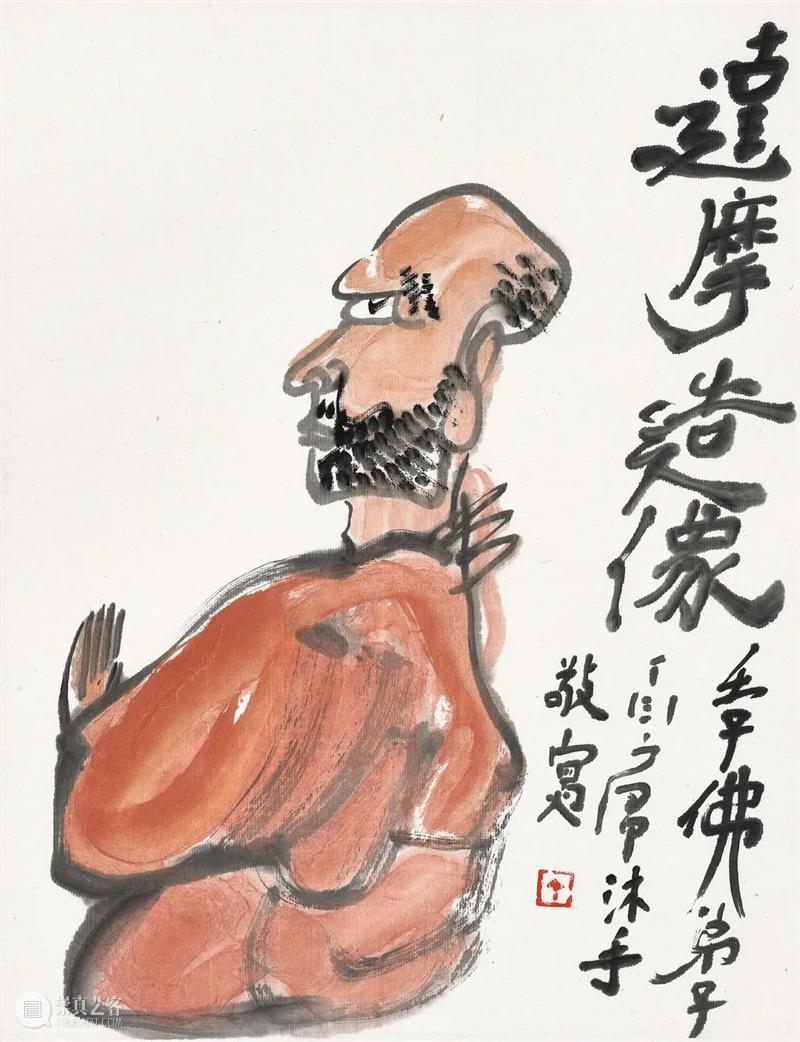 達摩造像
奉佛弟子
丁衍庸沐手
敬寫
崇真艺客